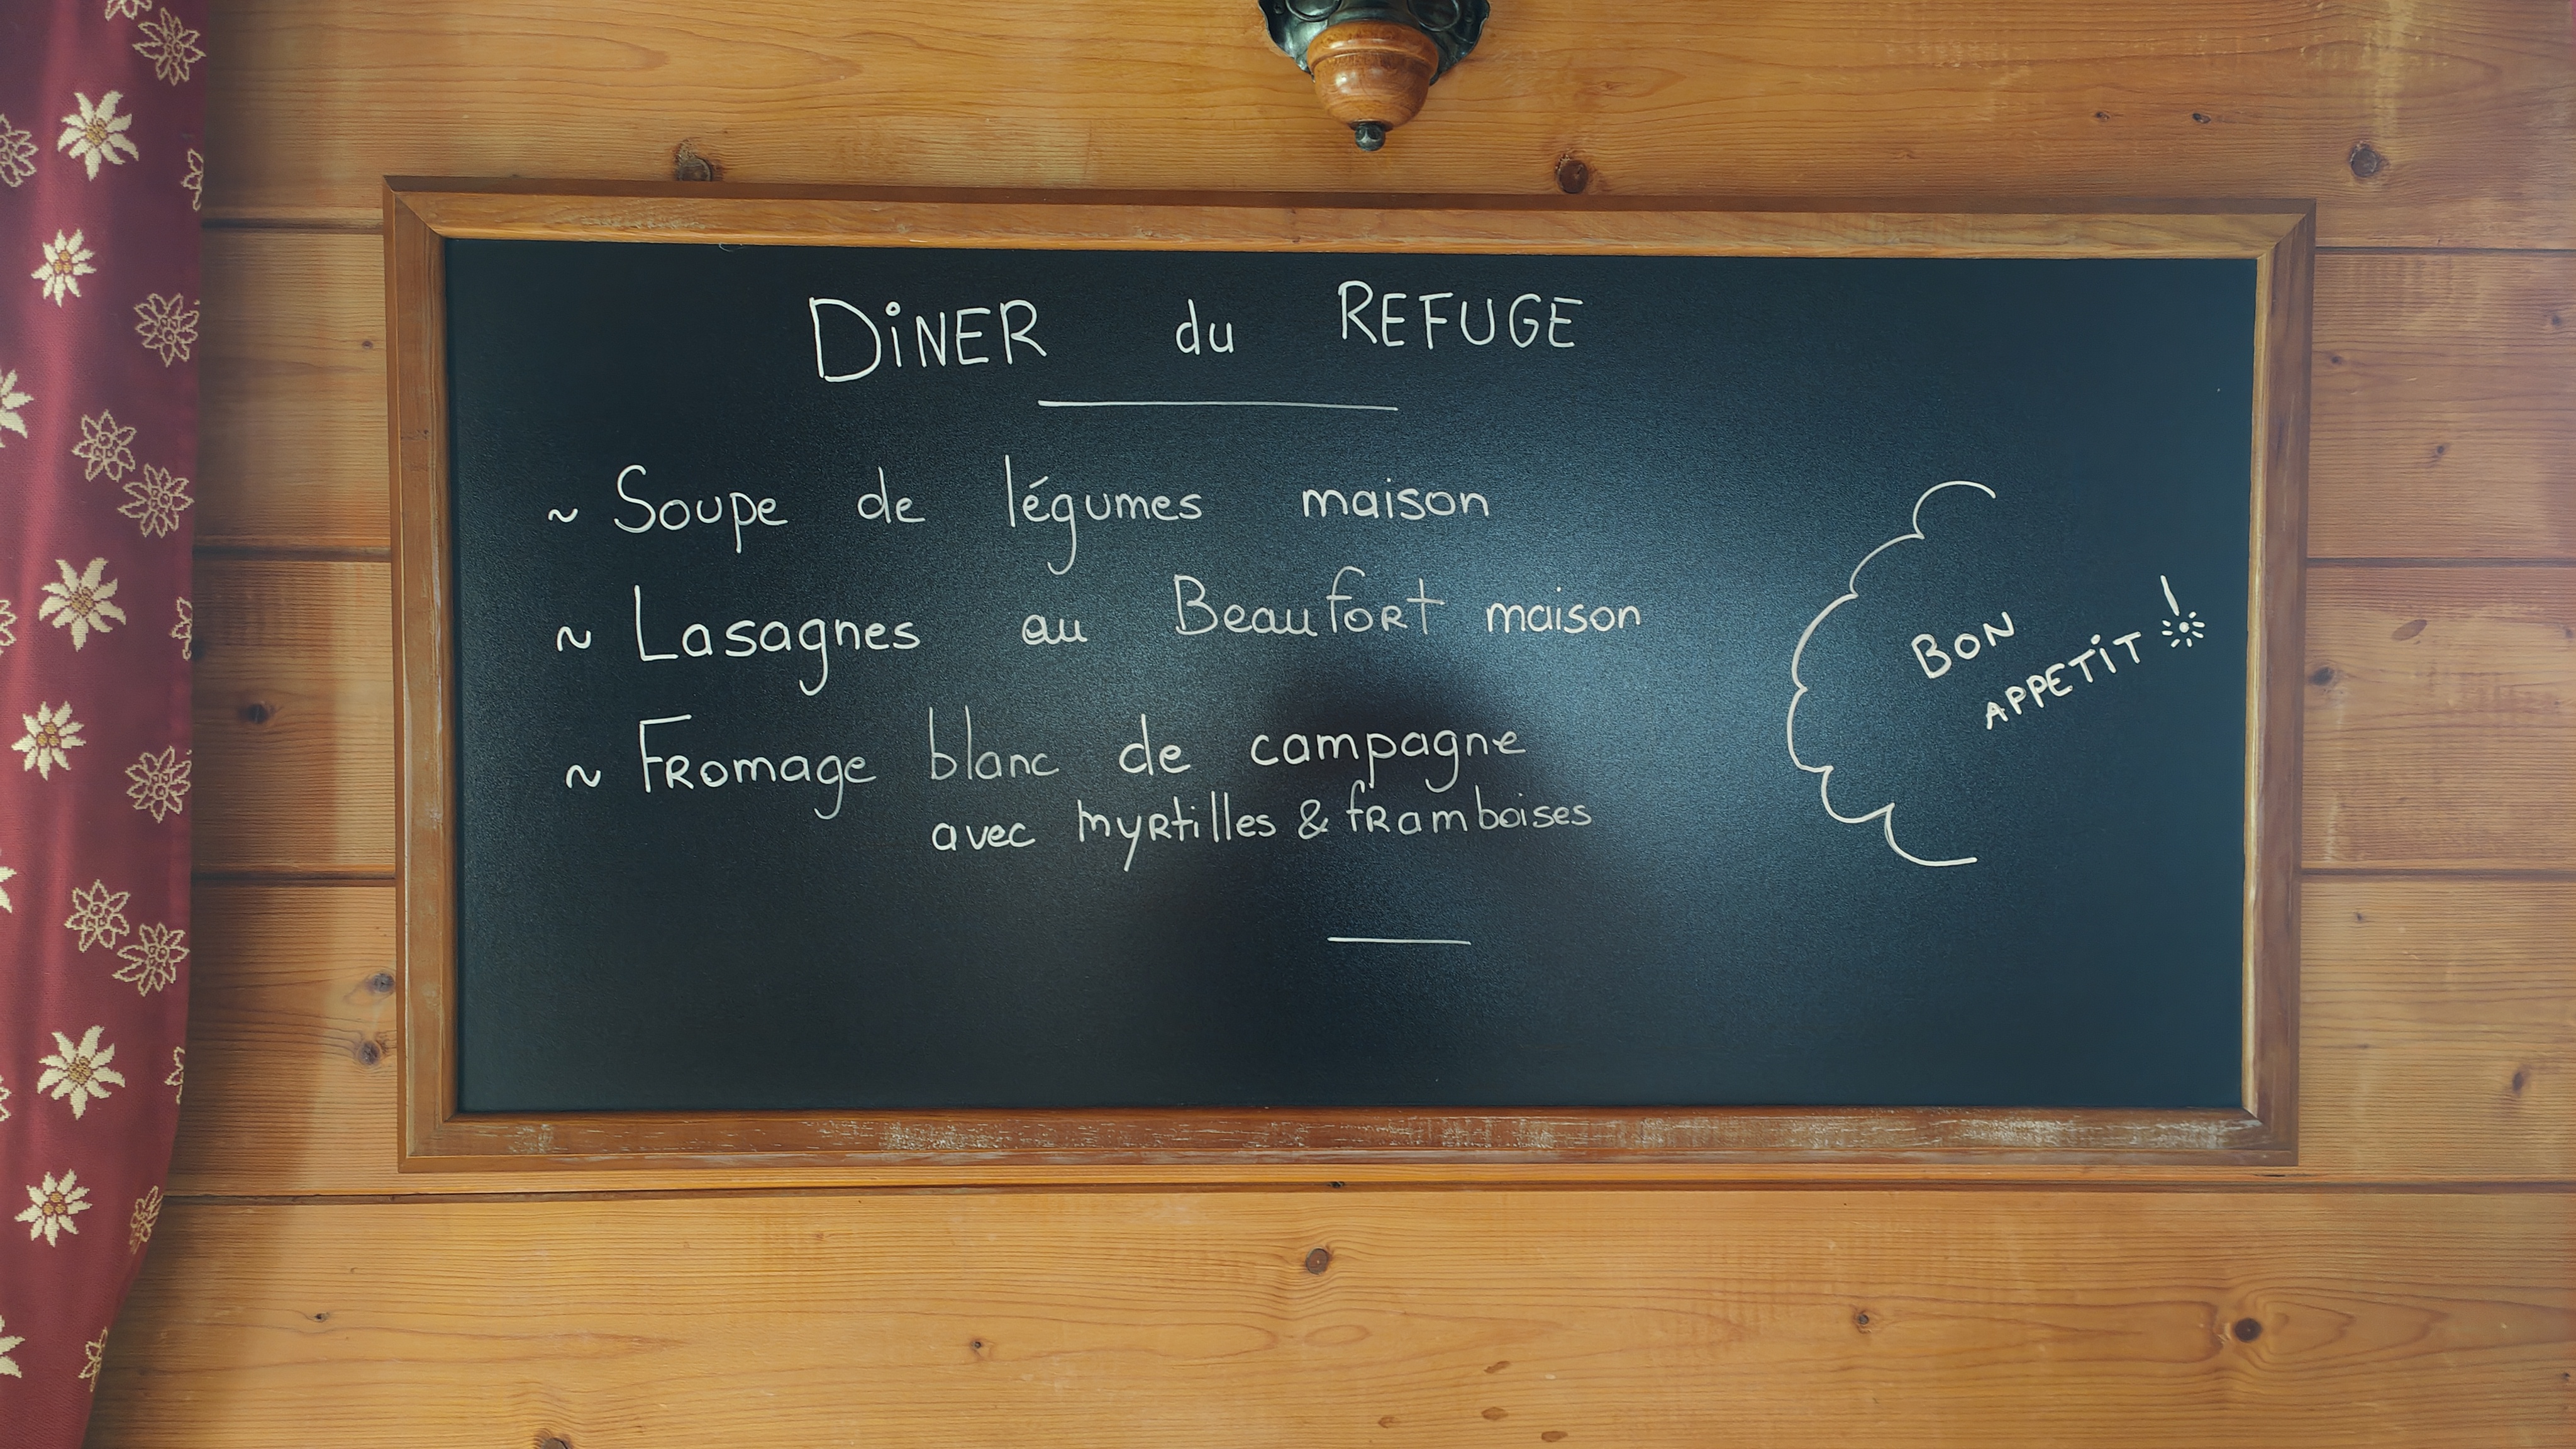 DiNER du REFUGE
~ Soupe de légumes maison
~ Lasagnes au Beaufort maison
~ Fromage blanc de campagne
avec myrtilles & framboises
BON
APPETiT !